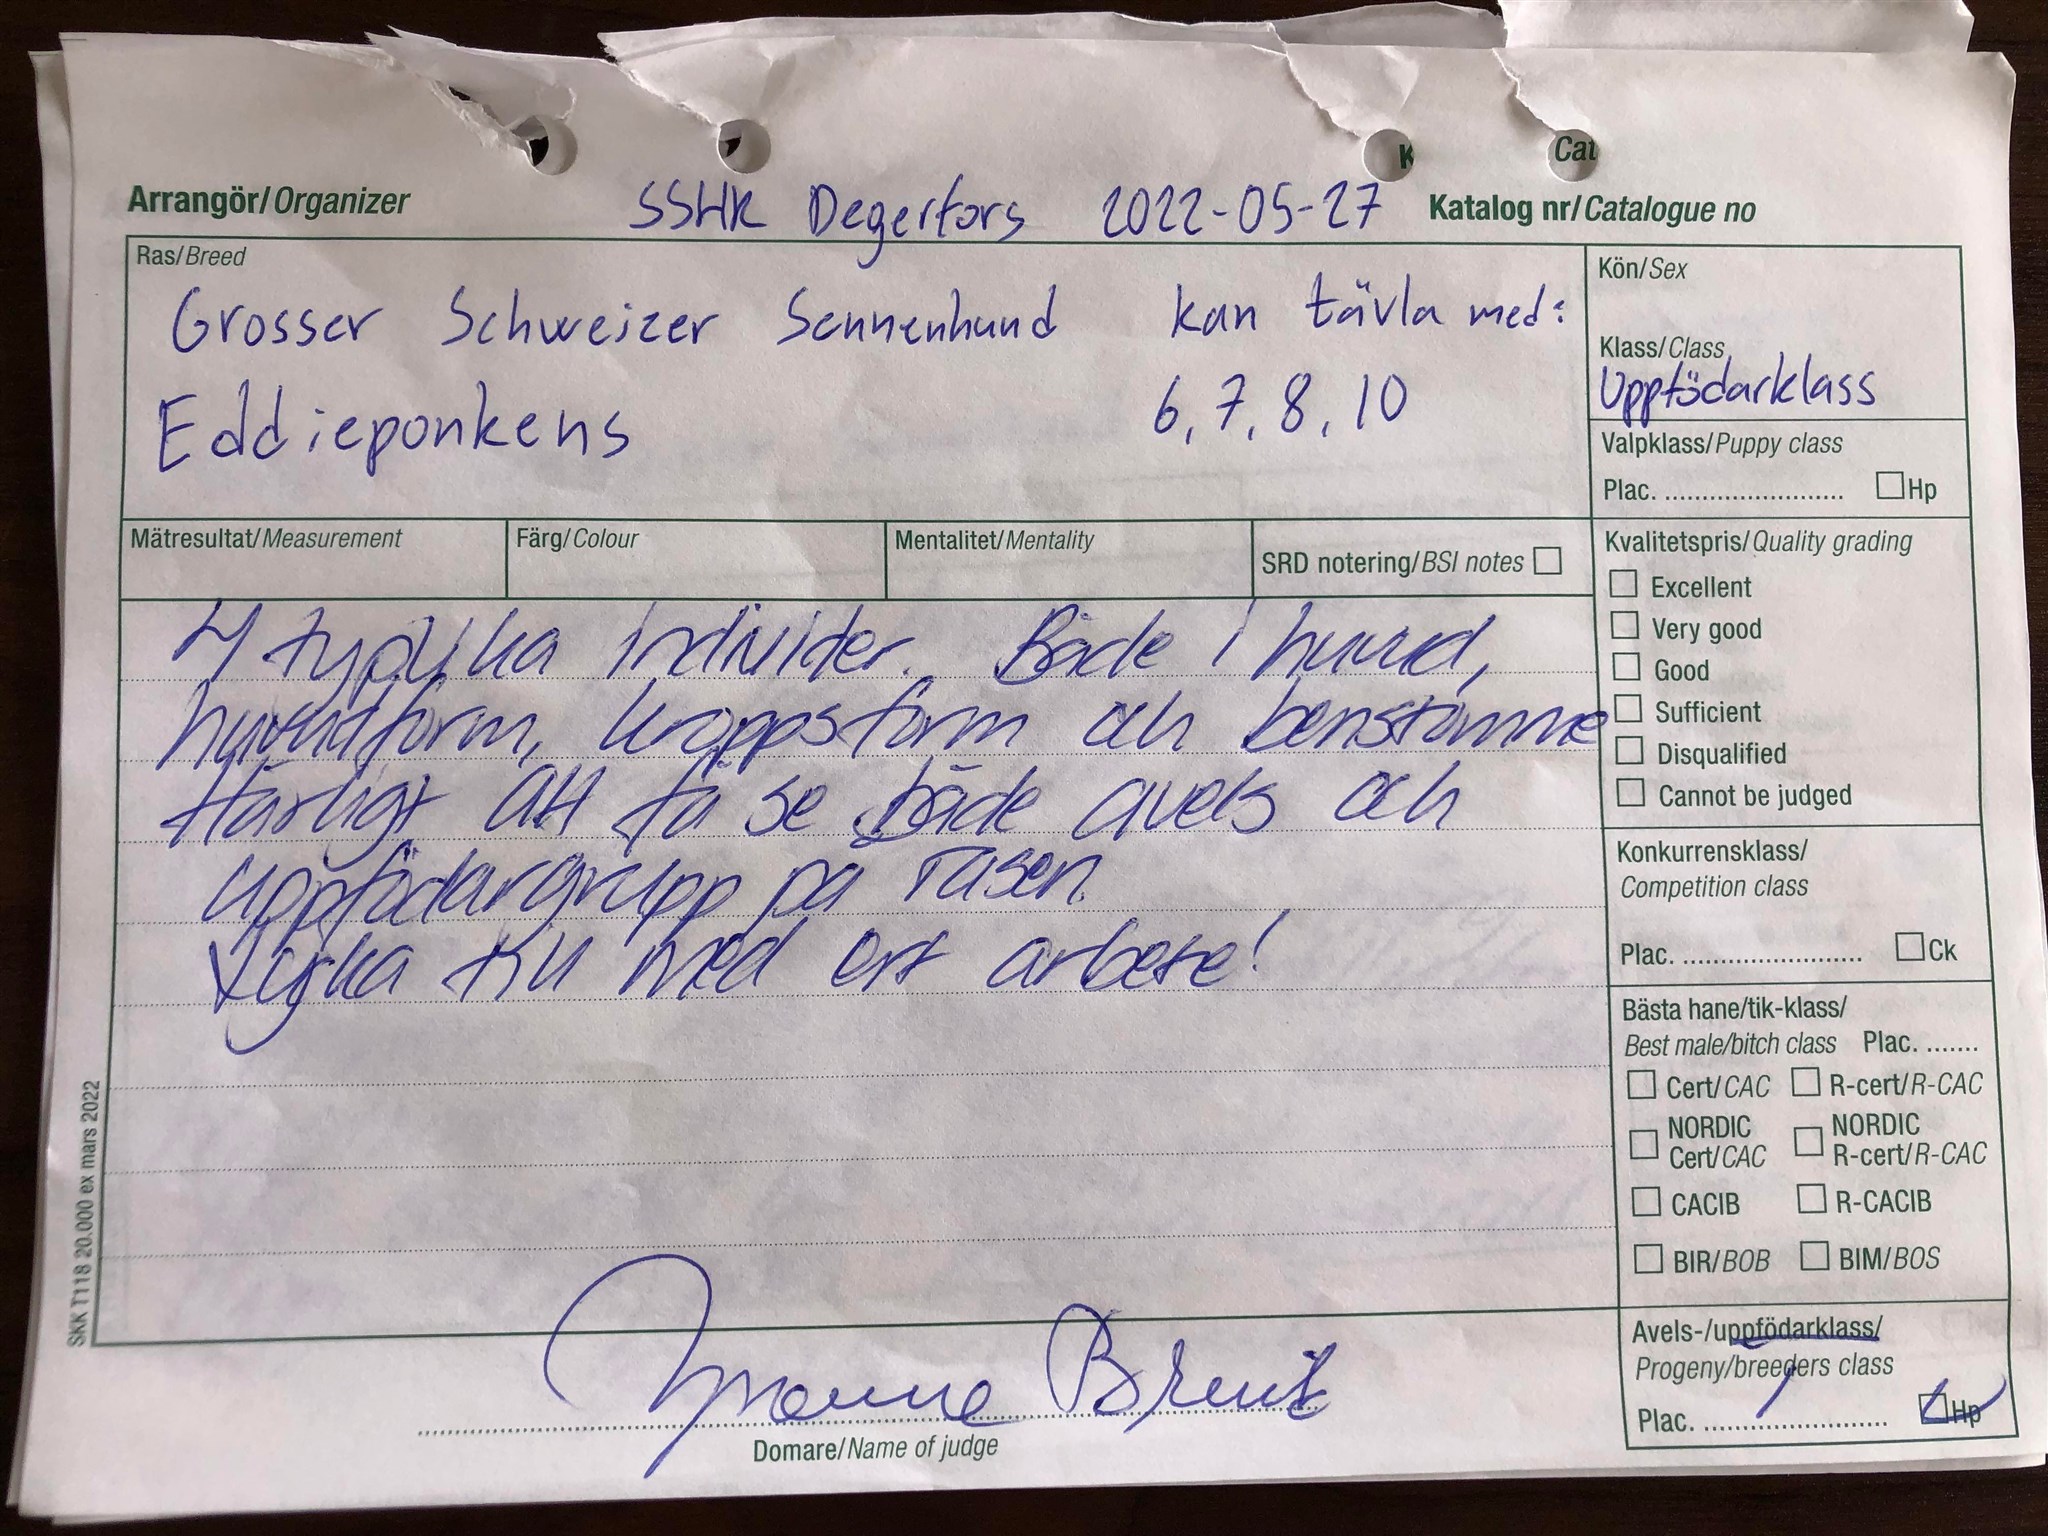 K Cat
Arrangör/Organizer SSHK Degerfors 2022-05-27 Katalog nr/Catalogue no
Ras/Breed
Grosser Schweizer Sennenhund kan tävla med:
Eddieponkens 6, 7, 8, 10
Kön/Sex
Klass/Class
Uppfödarklass
Valpklass/Puppy class
Plac. ........................ Hp
Mätresultat/Measurement Färg/Colour Mentalitet/Mentality SRD notering/BSI notes
4 typylika individer. Både i huvud,
huvudform, kroppsform och benstomme
Härligt att få se både avels och
uppfödargrupp på rasen.
Lycka till med ert arbete!
Kvalitetspris/Quality grading
Excellent
Very good
Good
Sufficient
Disqualified
Cannot be judged
Konkurrensklass/
Competition class
Plac. ........................ Ck
Bästa hane/tik-klass/
Best male/bitch class Plac. .......
Cert/CAC R-cert/R-CAC
NORDIC Cert/CAC NORDIC R-cert/R-CAC
CACIB R-CACIB
BIR/BOB BIM/BOS
Avels-/uppfödarklass/
Progeny/breeders class
Plac. 1 Hp
Domare/Name of judge
SKK T118 20.000 ex mars 2022